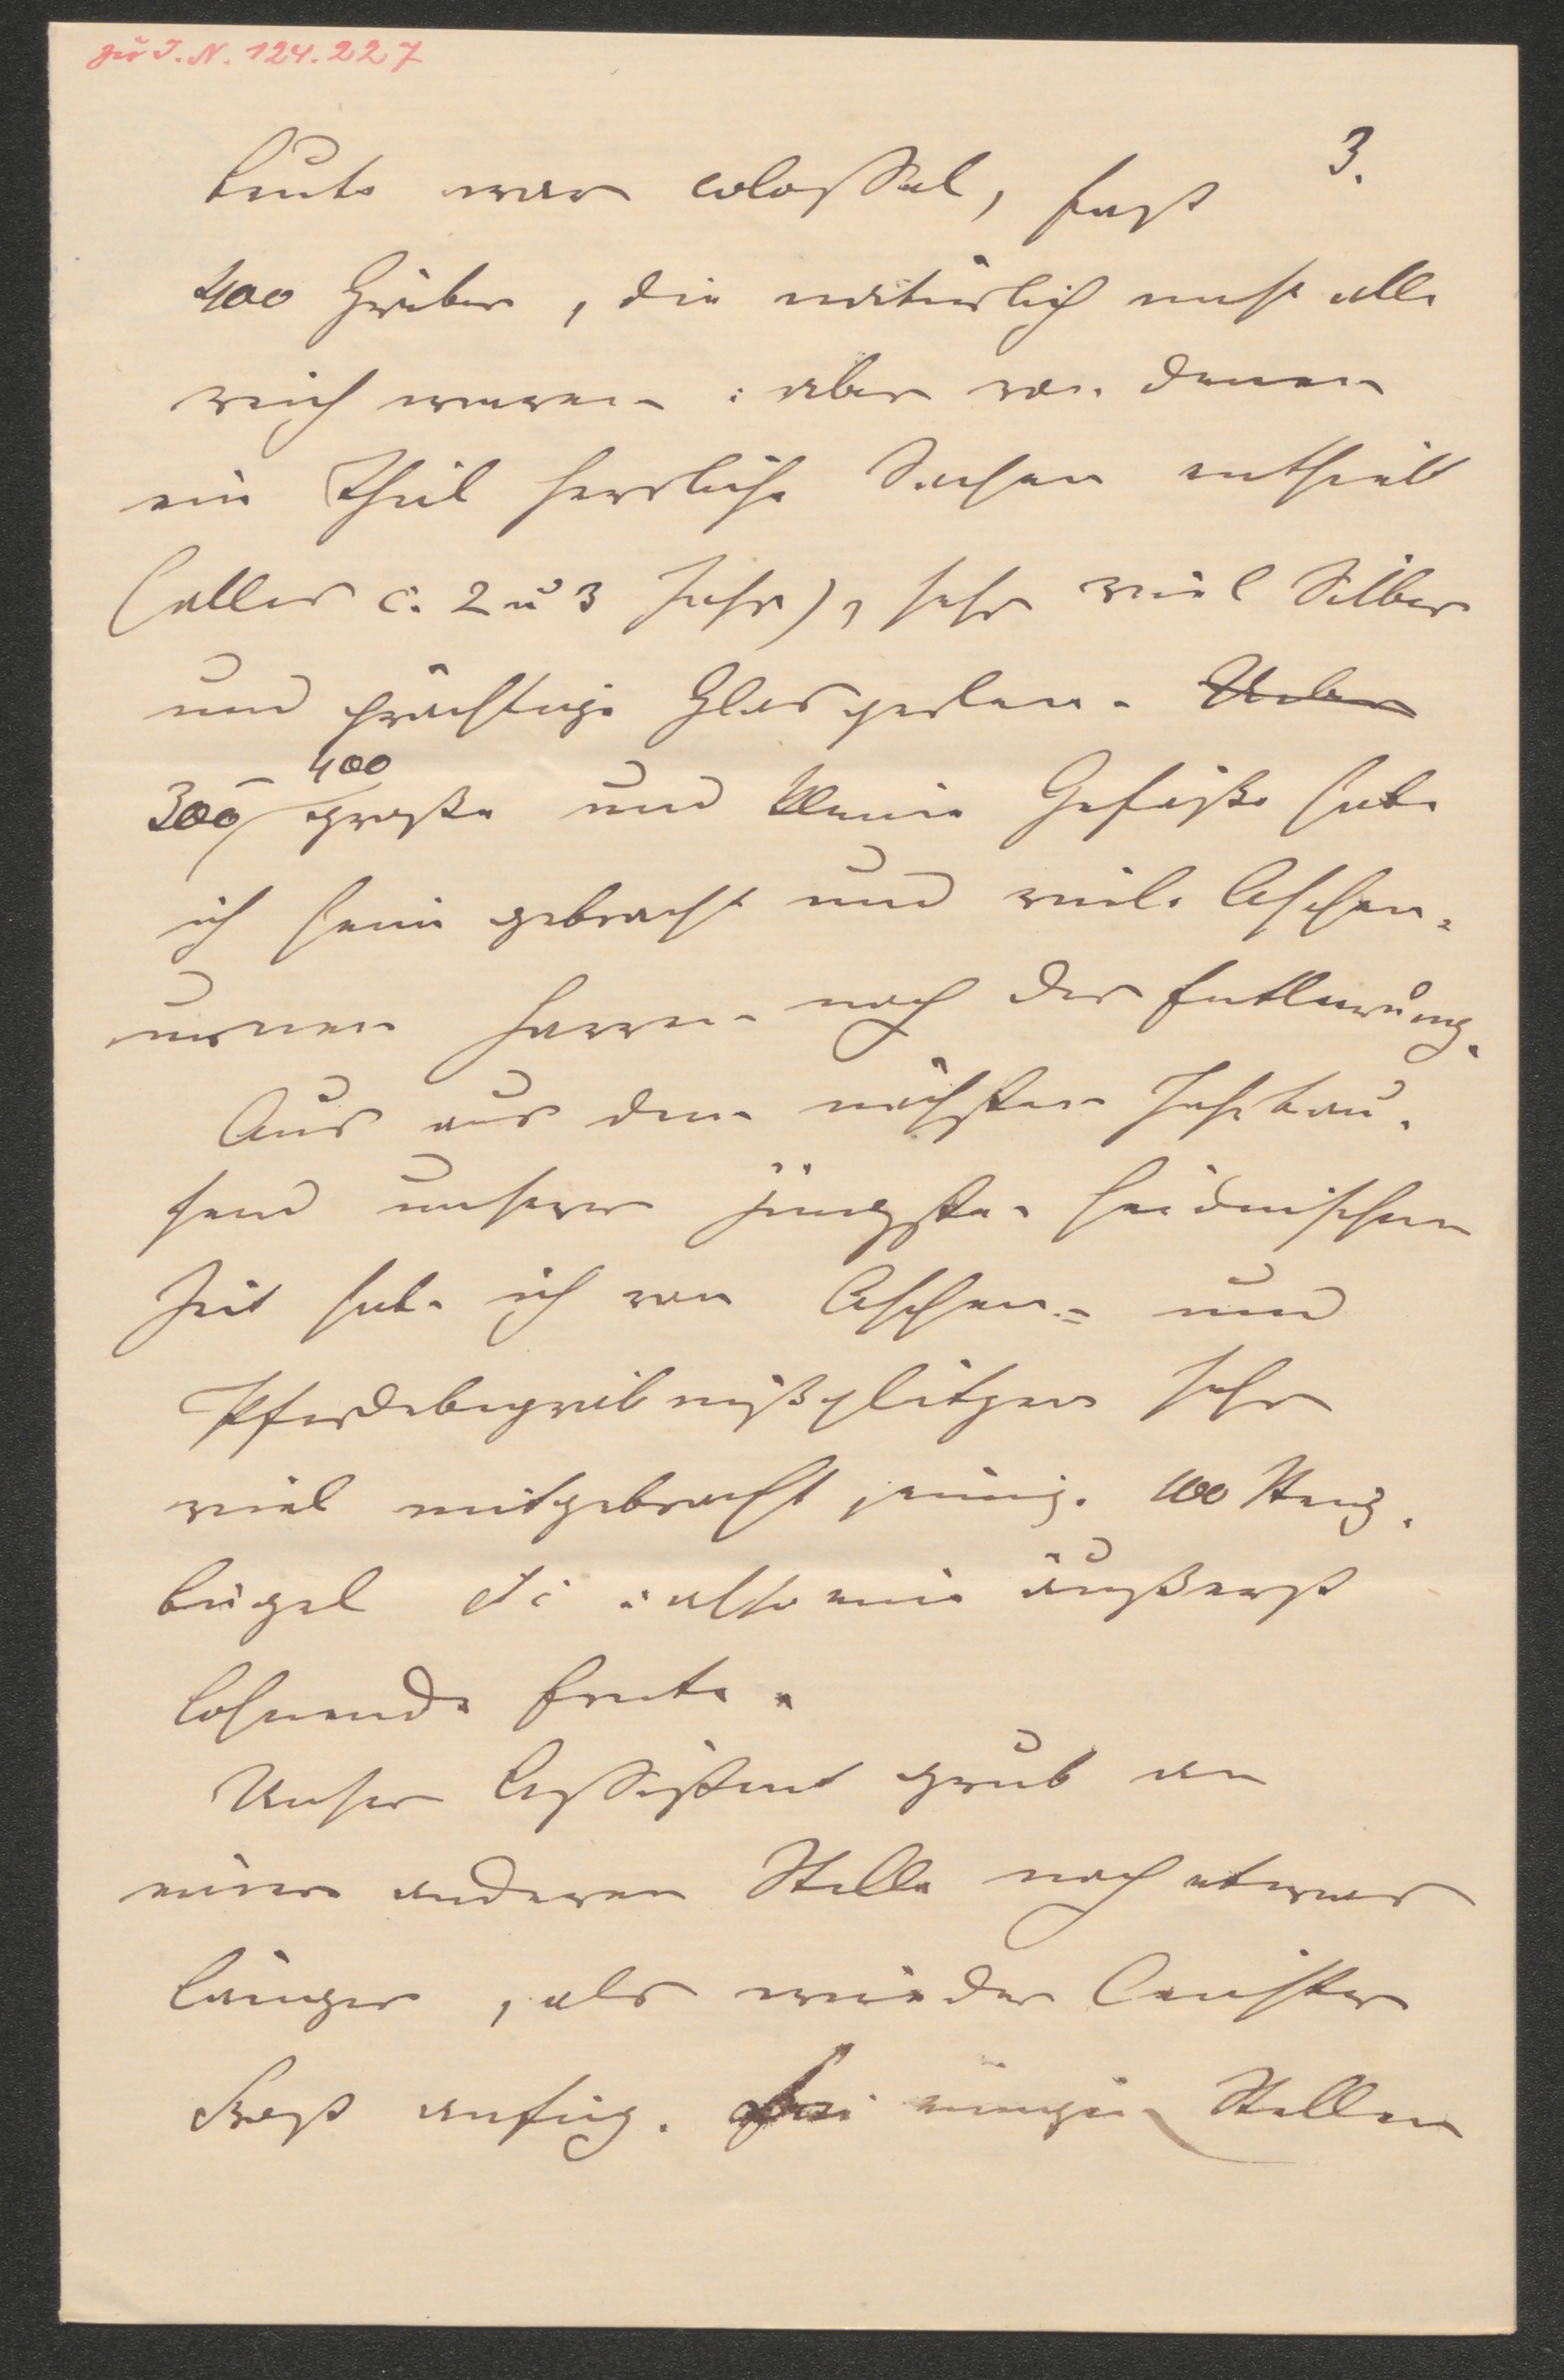 zu I.N. 124.227
3.
beute war colossal, fast
400 Gräber, die natürlich nicht alle
reich waren: aber von denen
ein Theil herrliche Sachen enthielt
(alles c. 2 u 3 Jahr), sehr viel Silber
und prächtige Glasperlen. Ueber
300-400 große und kleine Gefäße habe
ich heim gebracht und viele Aschen-
urnen harren noch der Entleerung.
Aus aus dem nächsten Jahrtau-
send unserer jüngsten heidnischen
Zeit habe ich von Aschen- und
Pferdebegräbnißplätzen sehr
viel mitgebracht, einige 100 Steig-
bügel etc: also eine äußerst
lohnende Ernte.
Unser Assistent grub an
einer anderen Stelle noch etwas
länger, als wieder
Frost anfing. einigen Stellen